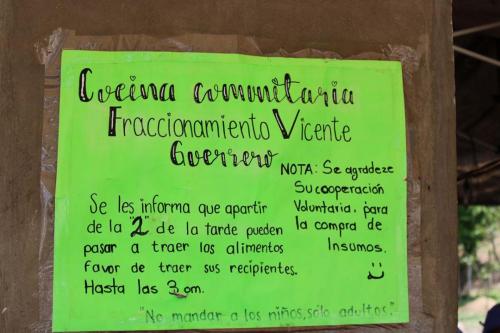 Cocina comunitaria
Fraccionamiento Vicente
Guerrero
NOTA: Se agradeze
Su cooperación
Voluntaria. para
la compra de
Insumos.
Se les informa que apartir
de la "2" de la tarde pueden
pasar a traer los alimentos
favor de traer sus recipientes.
Hasta las 3 pm.
"No mandar a los niños, sólo adultos."